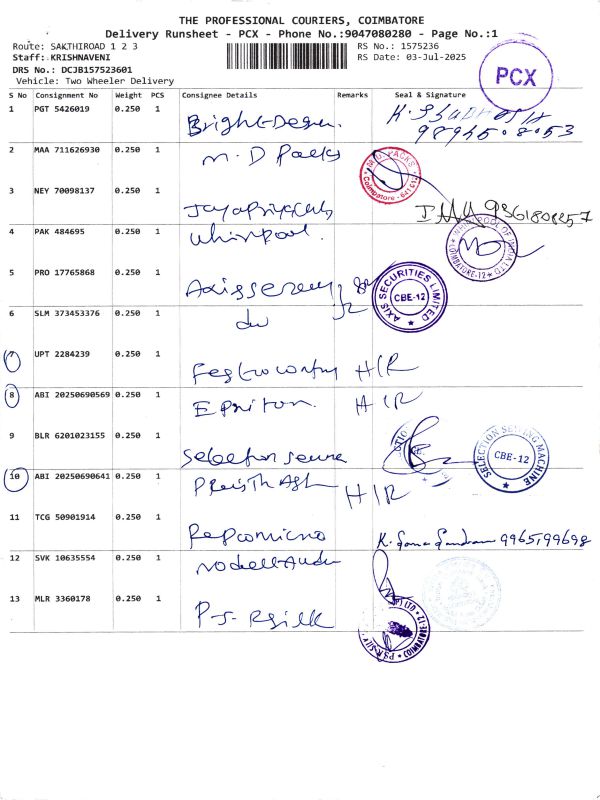 THE PROFESSIONAL COURIERS, COIMBATORE
Delivery Runsheet - PCX - Phone No.:9047080280 - Page No.:1
Route: SAKTHIROAD 1 2 3
RS No.: 1575236
Staff: KRISHNAVENI
RS Date: 03-Jul-2025
DRS No.: DCJB157523601
Vehicle: Two Wheeler Delivery
PCX
S No Consignment No Weight PCS Consignee Details Remarks Seal & Signature
1 PGT 5426019 0.250 1
98945 8053
2 MAA 711626930 0.250 1 M. D Packs
M.D. PACKS Coimbatore - 641 012
3 NEY 70098137 0.250 1
9361808857
4 PAK 484695 0.250 1 Whirlpool.
WHIRLPOOL OF INDIA LTD COIMBATORE-12
5 PRO 17765868 0.250 1
AXIS SECURITIES LIMITED CBE-12
6 SLM 373453376 0.250 1 do
7 UPT 2284239 0.250 1 H/R
8 ABI 20250690569 0.250 1 H/R
9 BLR 6201023155 0.250 1 Selection
SELECTION SEWING MACHINE CBE-12
10 ABI 20250690641 0.250 1 H/R
11 TCG 50901914 0.250 1 Repcomicro
9965199698
12 SVK 10635554 0.250 1
13 MLR 3360178 0.250 1 P.S. R Silk